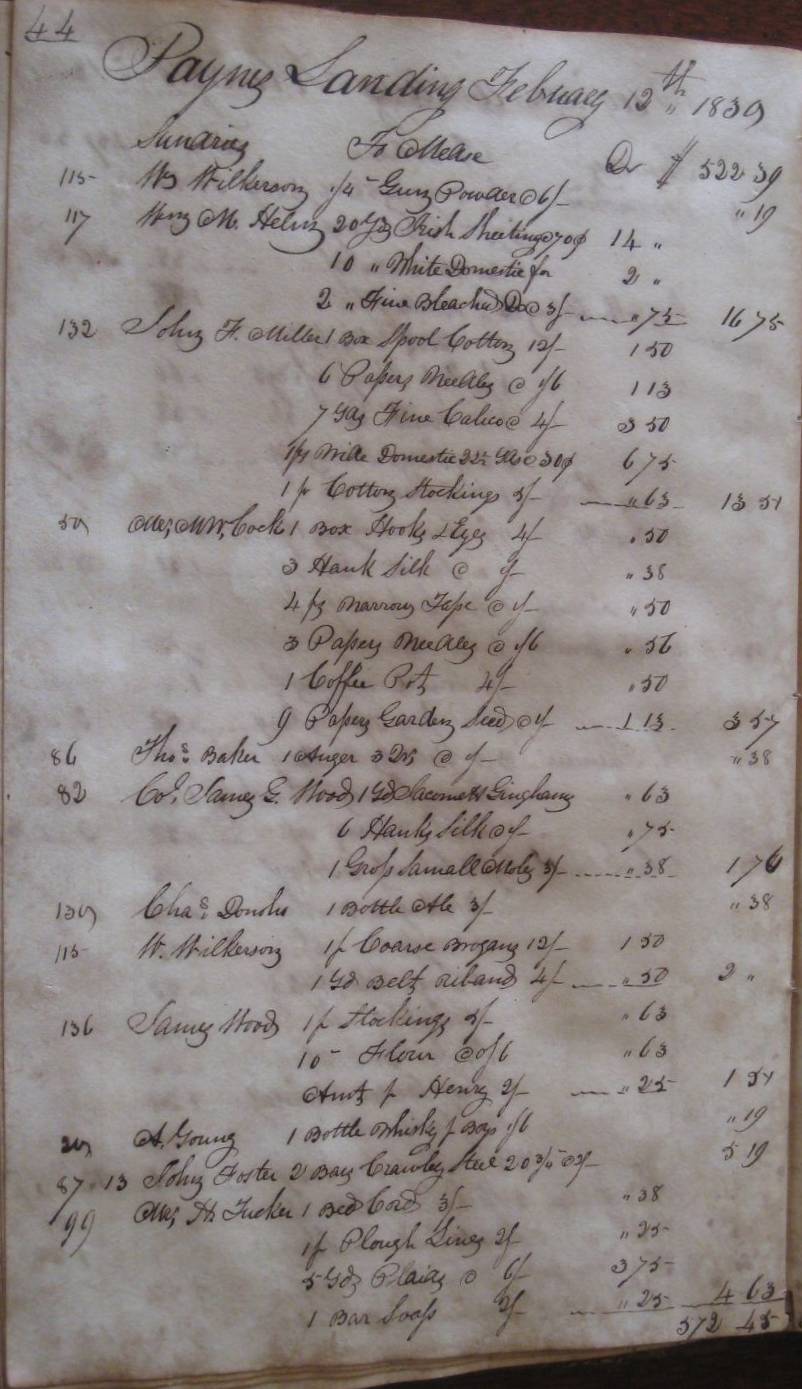 44
Paynes Landing February 12th 1839
Sundries To Mdse Dr $ 522 39
115 W Wilkerson 1/4 Gun Powder @ 6/- " 19
117 Wm M. Helm 20 Yds Irish Sheeting @ 70¢ 14 "
10 " White Domestic for 2 "
2 " Fine Bleached Do @ 3/- " 75 16 75
132 John F. Miller 1 Box Spool Cotton 12/- 1 50
6 Papers Needles @ 1/6 1 13
7 Yds Fine Calico @ 4/- 3 50
1 ps Wide Domestic 22½ Yds @ 30¢ 6 75
1 pr Cotton Stockings 5/- " 63 13 51
59 Cock 1 Box Hooks & Eyes 4/- " 50
3 Hank Silk @ 1/- " 38
4 ps Narrow Tape @ 1/- " 50
3 Papers Needles @ 1/6 " 56
1 Coffee Pot 4/- " 50
9 Papers Garden Seed @ 1/- 1 13 3 57
86 Thos Baker 1 Auger 3 Qrs @ 1/- " 38
82 Col. James G. Wood 1 Yd Gingham " 63
6 Hanks Silk @ 1/- " 75
1 Gross Small 3/- " 38 1 76
139 Chas. 1 Bottle Ale 3/- " 38
115 W. Wilkerson 1 pr Coarse Brogans 12/- 1 50
1 Yd Belt Riband 4/- " 50 2 "
136 James Wood 1 pr Stockings 5/- " 63
10 Flour @ 0/6 " 63
Amt p Henry 2/- " 25 1 51
A. Young 1 Bottle Whisky p Boy 1/6 " 19
87 13 John Foster 2 Bars Crawley Steel 20 3/4 @ 2/- 5 19
99 H Tucker 1 Bed Cord 3/- " 38
1 pr Plough Lines 2/- " 25
5 Yds Plaids @ 6/- 3 75
1 Bar Soap 2/- " 25 4 63
572 45